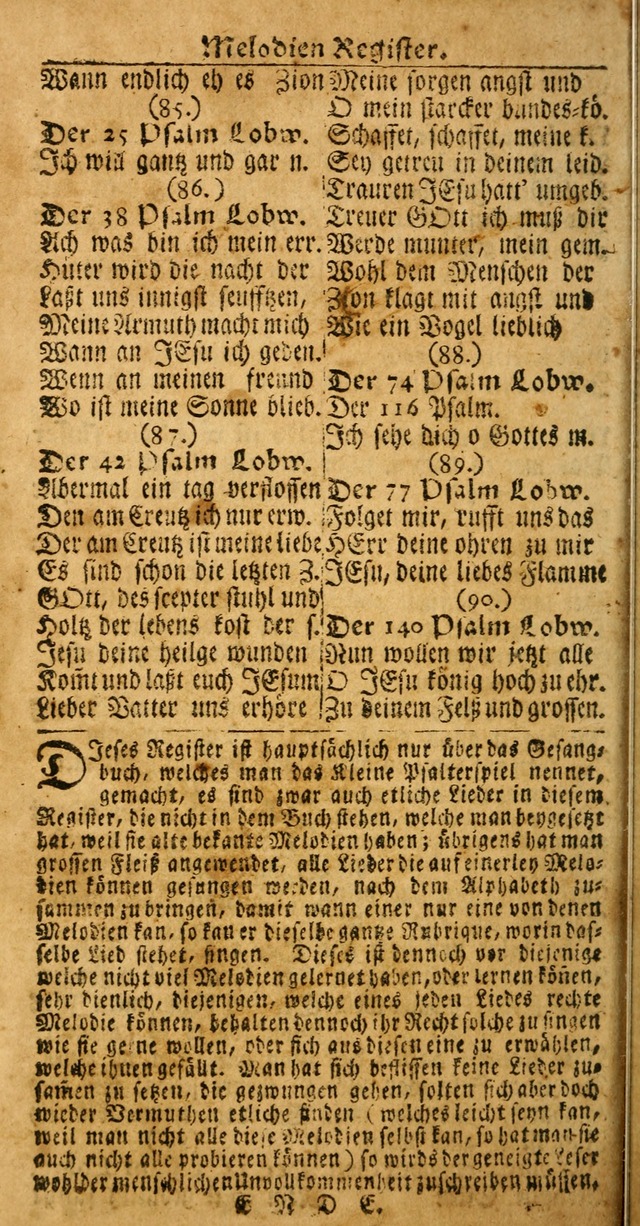 Melodien Register.
Wann endlich eh es Zion
(85.)
Der 25 Psalm Lobw.
Ich will gantz und gar n.
(86.)
Der 38 Psalm Lobw.
Ach was bin ich mein err.
Hüter wird die nacht der
Laßt uns innigst seufftzen,
Meine Armuth macht mich
Wann an JEsu ich geden.
Wenn an meinen freund
Wo ist meine Sonne blieb.
(87.)
Der 42 Psalm Lobw.
Abermal ein tag verflossen
Den am Creutz ich nur erw.
Der am Creutz ist meine liebe
Es sind schon die letzten Z.
GOtt, des scepter stuhl und
Holtz der lebens kost der s.
Jesu deine heilge wunden
Komt und laßt euch JEsum
Lieber Vatter uns erhöre
Meine sorgen angst und
O mein starcker bundes-kö.
Schaffet, schaffet, meine k.
Sey getreu in deinem leid.
Trauren JEsu hatt' umgeb.
Treuer GOtt ich muß dir
Werde munter, mein gem.
Wohl dem Menschen der
Zion klagt mit angst und
Wie ein Vogel lieblich
(88.)
Der 74 Psalm Lobw.
Der 116 Psalm.
Ich sehe dich o Gottes m.
(89.)
Der 77 Psalm Lobw.
Folget mir, rufft uns das
HErr deine ohren zu mir
JEsu, deine liebes Flamme
(90.)
Der 140 Psalm Lobw.
Nun wollen wir jetzt alle
O JEsu könig hoch zu ehr.
Zu deinem Felß und grossen.
DIeses Register ist hauptsächlich nur über das Gesang-
buch, welches man das Kleine Psalterspiel nennet,
gemacht, es sind zwar auch etliche Lieder in diesem
Register, die nicht in dem Buch stehen, welche man beygesetzt
hat, weil sie alte bekante Melodien haben; übrigens hat man
grossen Fleiß angewendet, alle Lieder die auf einerley Melo-
dien können gesungen werden, nach dem Alphabeth zu-
sammen zu bringen, damit wann einer nur eine von denen
Melodien kan, so kan er dieselbe gantze Rubrique, worin das-
selbe Lied stehet, singen. Dieses ist dennoch vor diejenige
welche nicht viel Melodien gelernet haben, oder lernen können,
sehr dienlich, diejenigen, welche eines jeden Liedes rechte
Melodie können, behalten dennoch ihr Recht solche zu singen
wie sie gerne wollen, oder sich aus diesen eine zu erwählen,
welche ihnen gefällt. Man hat sich beflissen keine Lieder zu-
samen zu setzen, die gezwungen gehen, solten sich aber doch
wieder Vermuthen etliche finden (welches leicht seyn kan,
weil man nicht alle diese Melodien selbst kan, so hat man sie
auch nicht alle probieren können) so wirds der geneigte Leser
wohl der menschlichen Unvollkommenheit zuschreiben müssen.
E N D E.